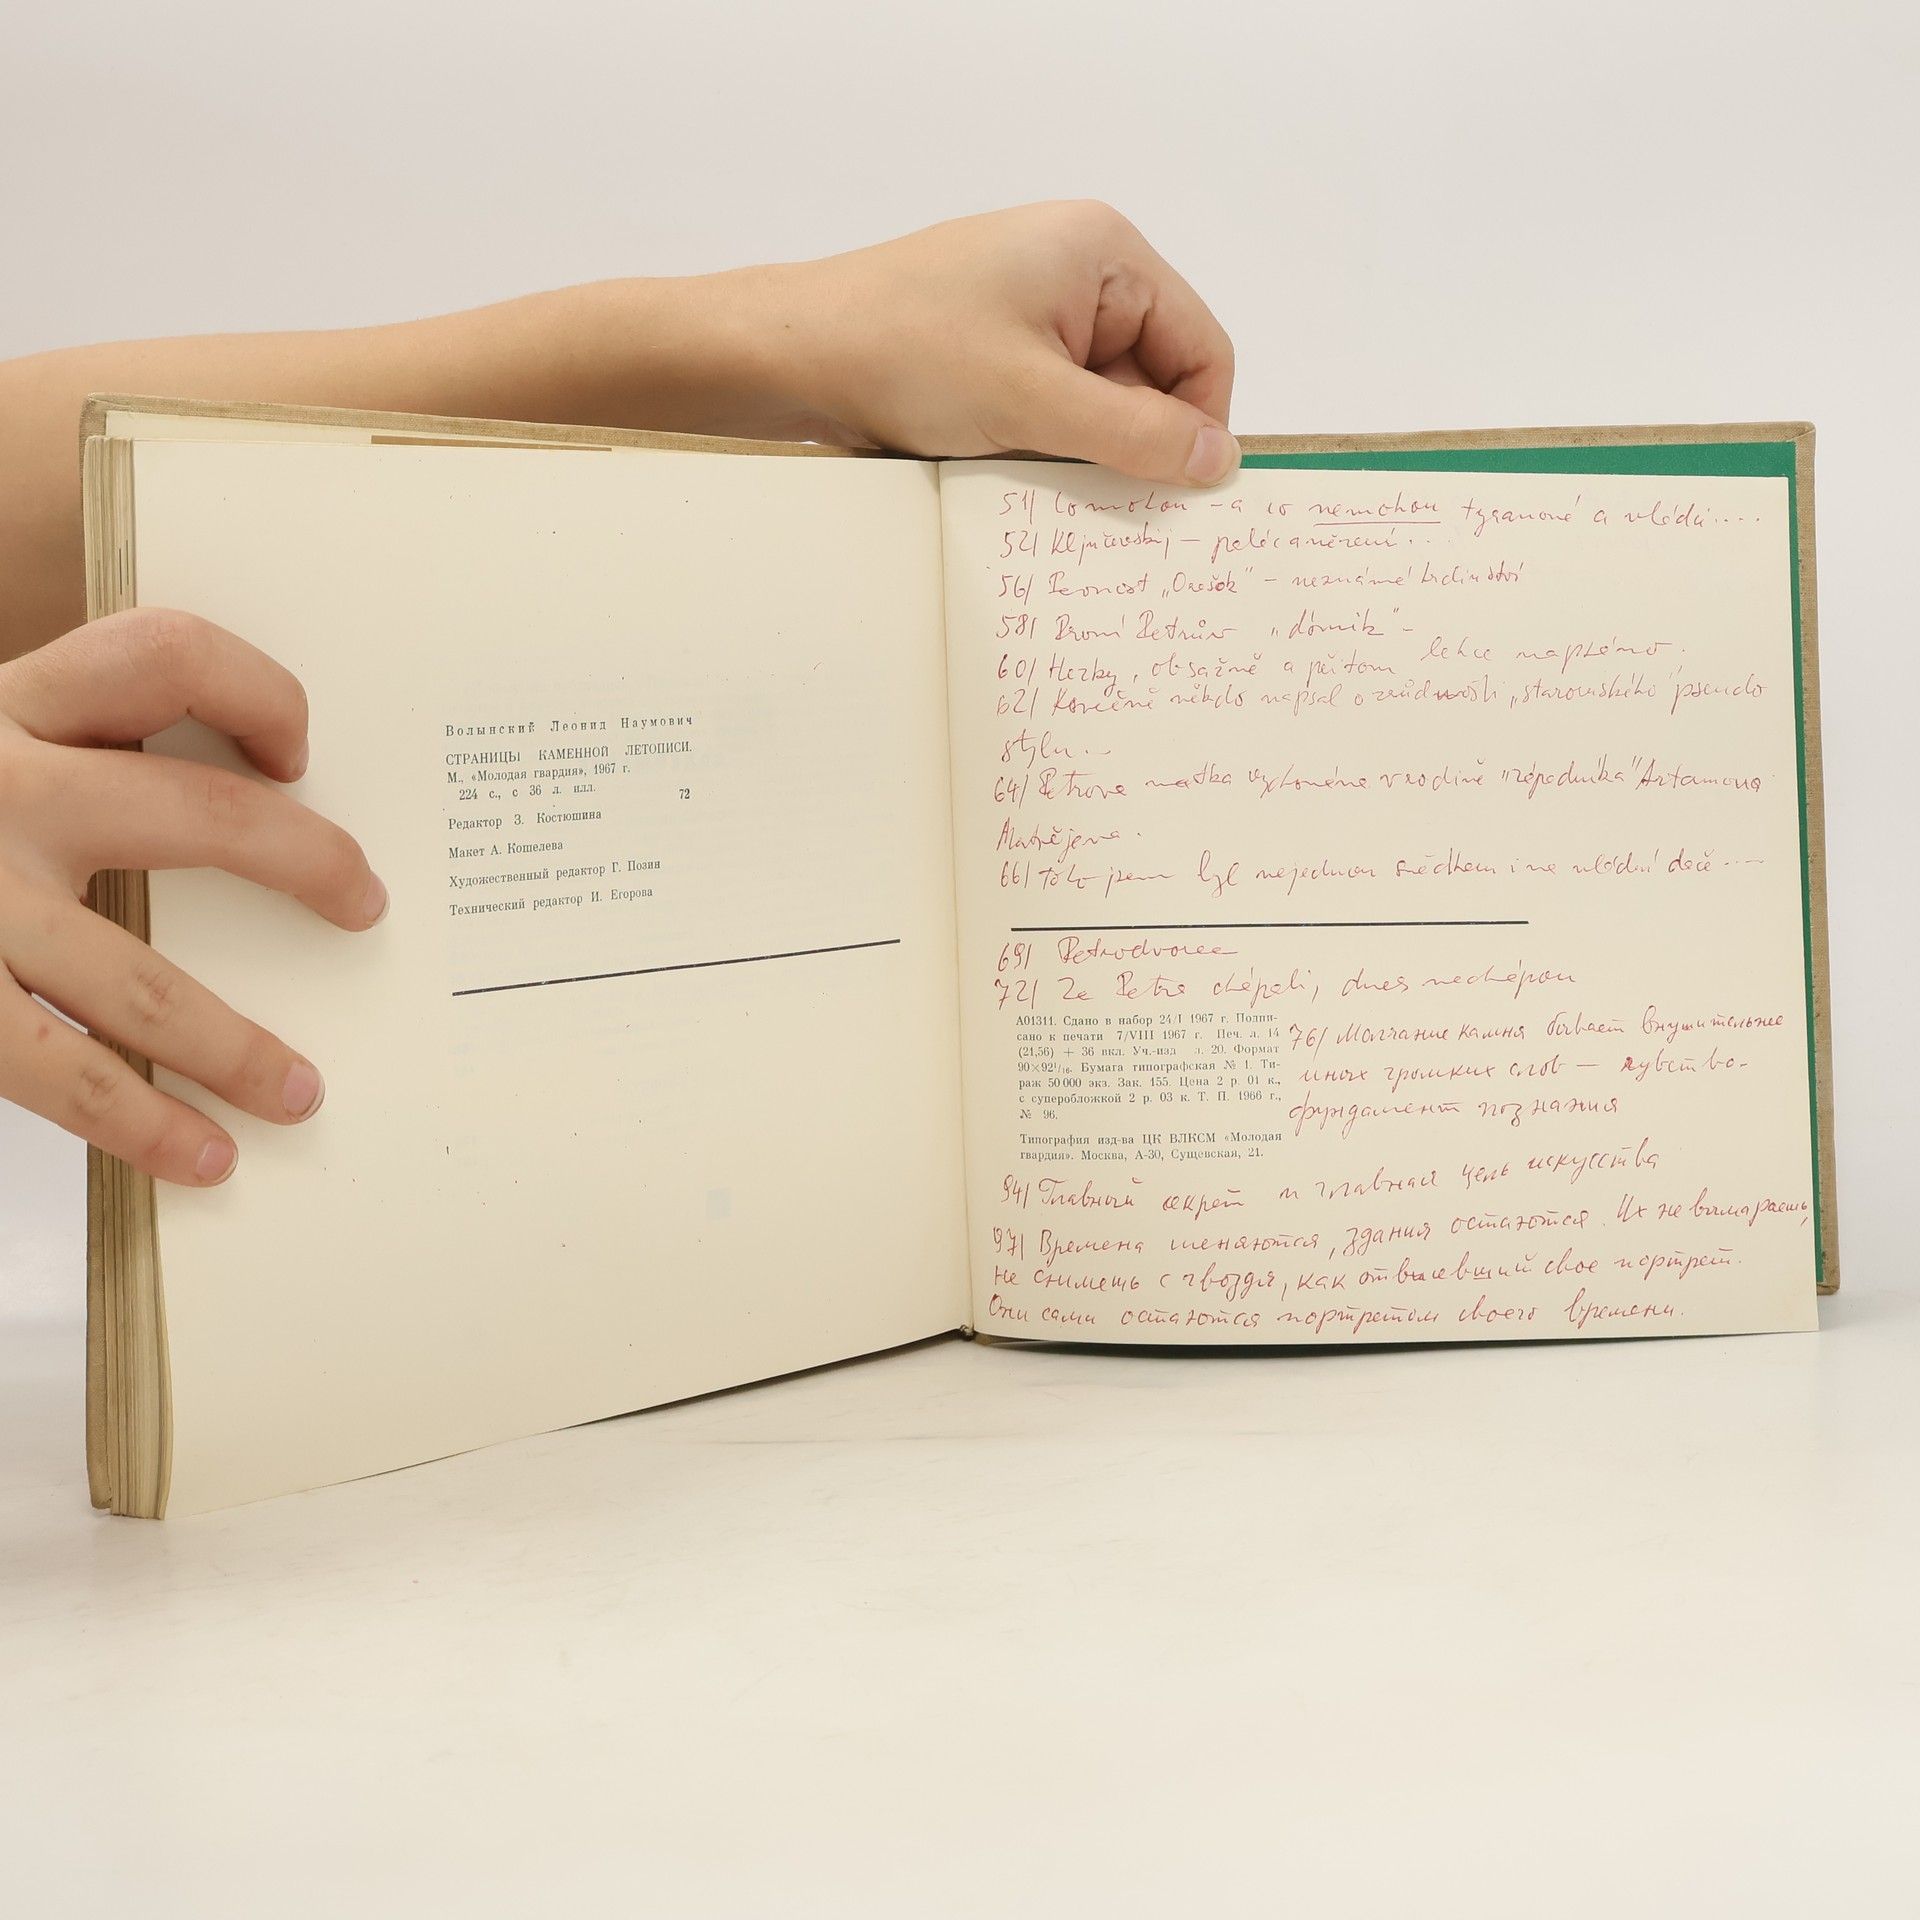 Волынский Леонид Наумович
СТРАНИЦЫ КАМЕННОЙ ЛЕТОПИСИ.
М., «Молодая гвардия», 1967 г.
224 с., с 36 л. илл.
72
Редактор З. Костюшина
Макет А. Кошелева
Художественный редактор Г. Позин
Технический редактор И. Егорова
51/ Co mohou - a co nemohou tyranové a vládci....
52/ Ključevskij -
56/ Pevnost „Orešek" - neznámé hrdinství
58/ První Petrův "dómik" -
60/ Hezky, obsažně a přitom lehce napsáno.
62/ Konečně někdo napsal o zrůdnosti „staroruského pseudo
stylu...
64/ Petrova matka vychována v rodině "západníka" Artamona
Matvějeva.
66/ toho jsem byl nejednou svědkem i na vládní dače ....
69/ Petrodvorec
72/ Za Petra chápali, dnes nechápou
А01311. Сдано в набор 24/I 1967 г. Подпи-
сано к печати 7/VIII 1967 г. Печ. л. 14
(21,56) + 36 вкл. Уч.-изд л. 20. Формат
90×92 1/16. Бумага типографская № 1. Ти-
раж 50 000 экз. Зак. 155. Цена 2 р. 01 к.,
с суперобложкой 2 р. 03 к. Т. П. 1966 г.,
№ 96.
Типография изд-ва ЦК ВЛКСМ «Молодая
гвардия». Москва, А-30, Сущевская, 21.
76/ Молчание камня бывает внушительнее
иных громких слов — чувство-
фундамент познания
94/ Главный секрет и главная цель искусства
97/ Времена меняются, здания остаются. Их не вымараешь,
не снимешь с гвоздя, как отвисевший свое портрет.
Они сами остаются портретом своего времени.